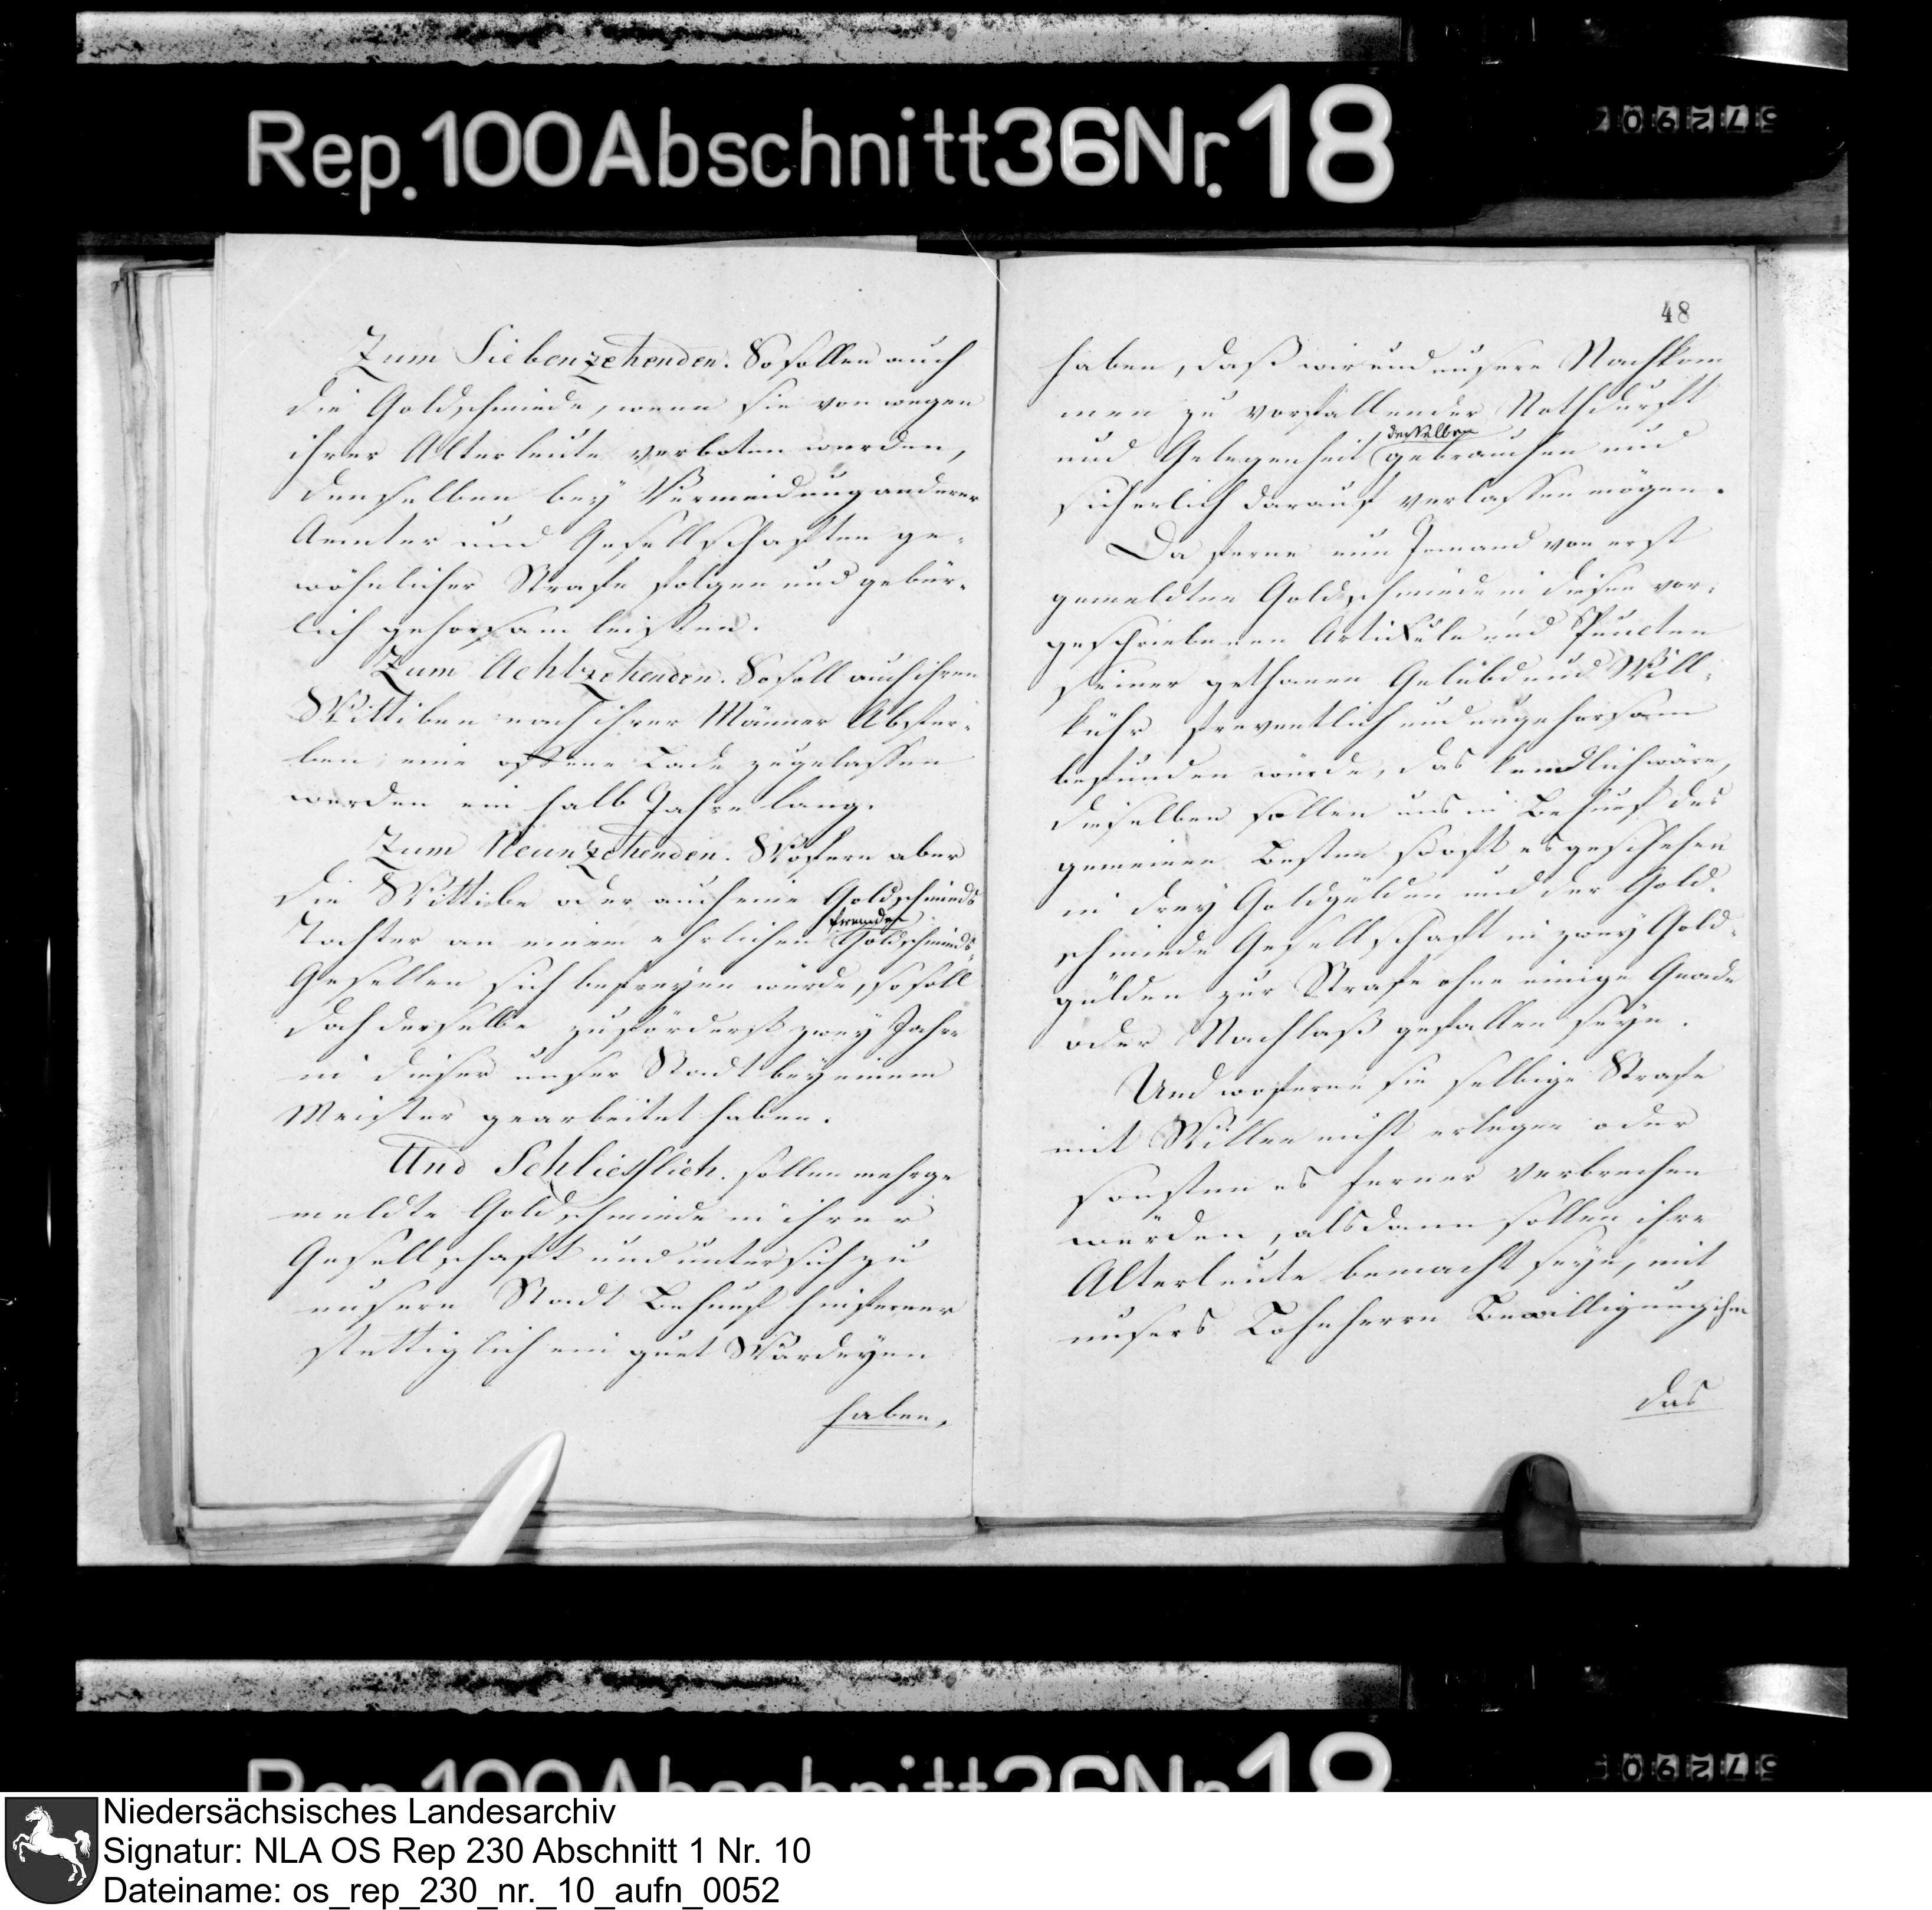 Rep. 100 Abschnitt 36 Nr. 18
Zum Siebenzehenden. So sollen auch
die Goldschmiede, wenn sie von wegen
ihrer Alterleute verboten werden,
denselben bey Vermeidung anderer
Aemter und Gesellschaften ge-
wöhnlicher Strafe folgen und gebür-
lich gehorsam leisten.
Zum Achtzehenden. So soll auch ihren
Wittiben nach ihrer Männer Abster-
ben, eine offene Lade zugelassen
werden ein halb Jahr lang.
Zum Neunzehenden. Wofern aber
die Wittibe oder auch eine Goldschmieds
fremden
Tochter an einem ehrlichen Goldschmieds-
Gesellen sich befreyen würde, so soll
doch derselbe zuförderst zwey Jahre
in dieser unser Stadt bey einem
Meister gearbeitet haben.
Und Schliesslich. sollen mehrge
meldte Goldschmiede in ihrer
Gesellschaft und unter sich zu
unsern Stadt Behueuf hinferner
stettiglich ein guet Wardeyen
haben,
48
haben, daß wir und unsere Nachkom
men zu vorfallender Nothdurft
desselben
und Gelegenheit gebrauchen und
sicherlich darauf verlassen mögen.
Da ferne nun Jemand von erst
gemeldten Goldschmiede in diesen vor-
geschriebenen Artikule und Puncten
seiner gethanen Gelübd und Will-
kühr freventlich und ungehorsam
befunden würde, das kendlich wäre,
dieselben sollen uns in Behuef des
gemeinen Besten so oft es geschehen
in drey Goldgülden und der Gold-
schmiede Gesellschaft in zwey Gold-
gülden zur Strafe ohne einige Gnade
oder Nachlaß gefallen seyn.
Und woferne sie selbige Strafe
mit Willen nicht erlegen oder
sonsten es ferner verbrechen
würden, alsdann sollen ihre
Alterleute bemacht seyn, mit
unsers Lohnherrn Bewilligung ihm
das
Niedersächsisches Landesarchiv
Signatur: NLA OS Rep 230 Abschnitt 1 Nr. 10
Dateiname: os_rep_230_nr._10_aufn_0052